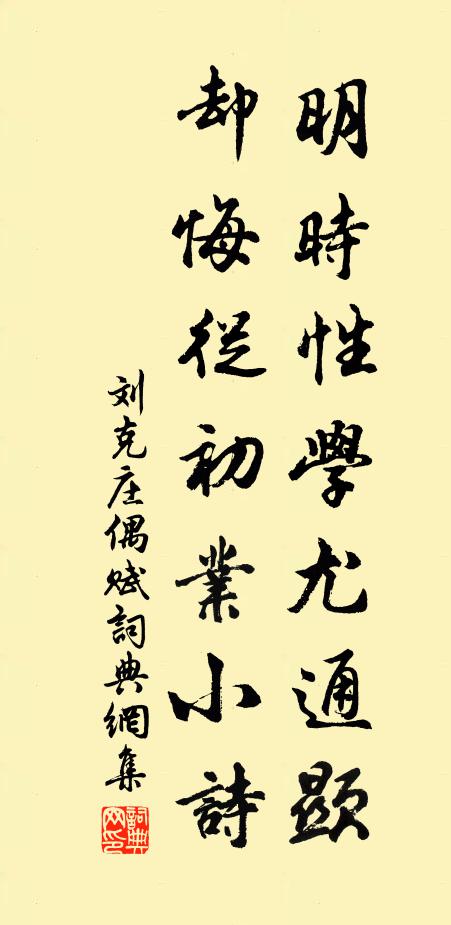 明時性學尤通顯
却悔從初業小詩
刘克庄偶赋詞典網集
詞典網印